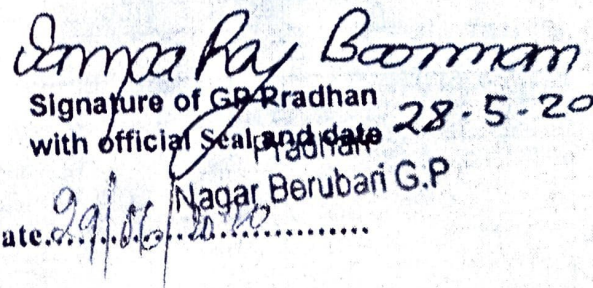 Sampa Ray Barman
Signature of GP Pradhan
with official Seal and date 28-5-20
Pradhan
Nagar Berubari G.P
ate. 29/06/2020